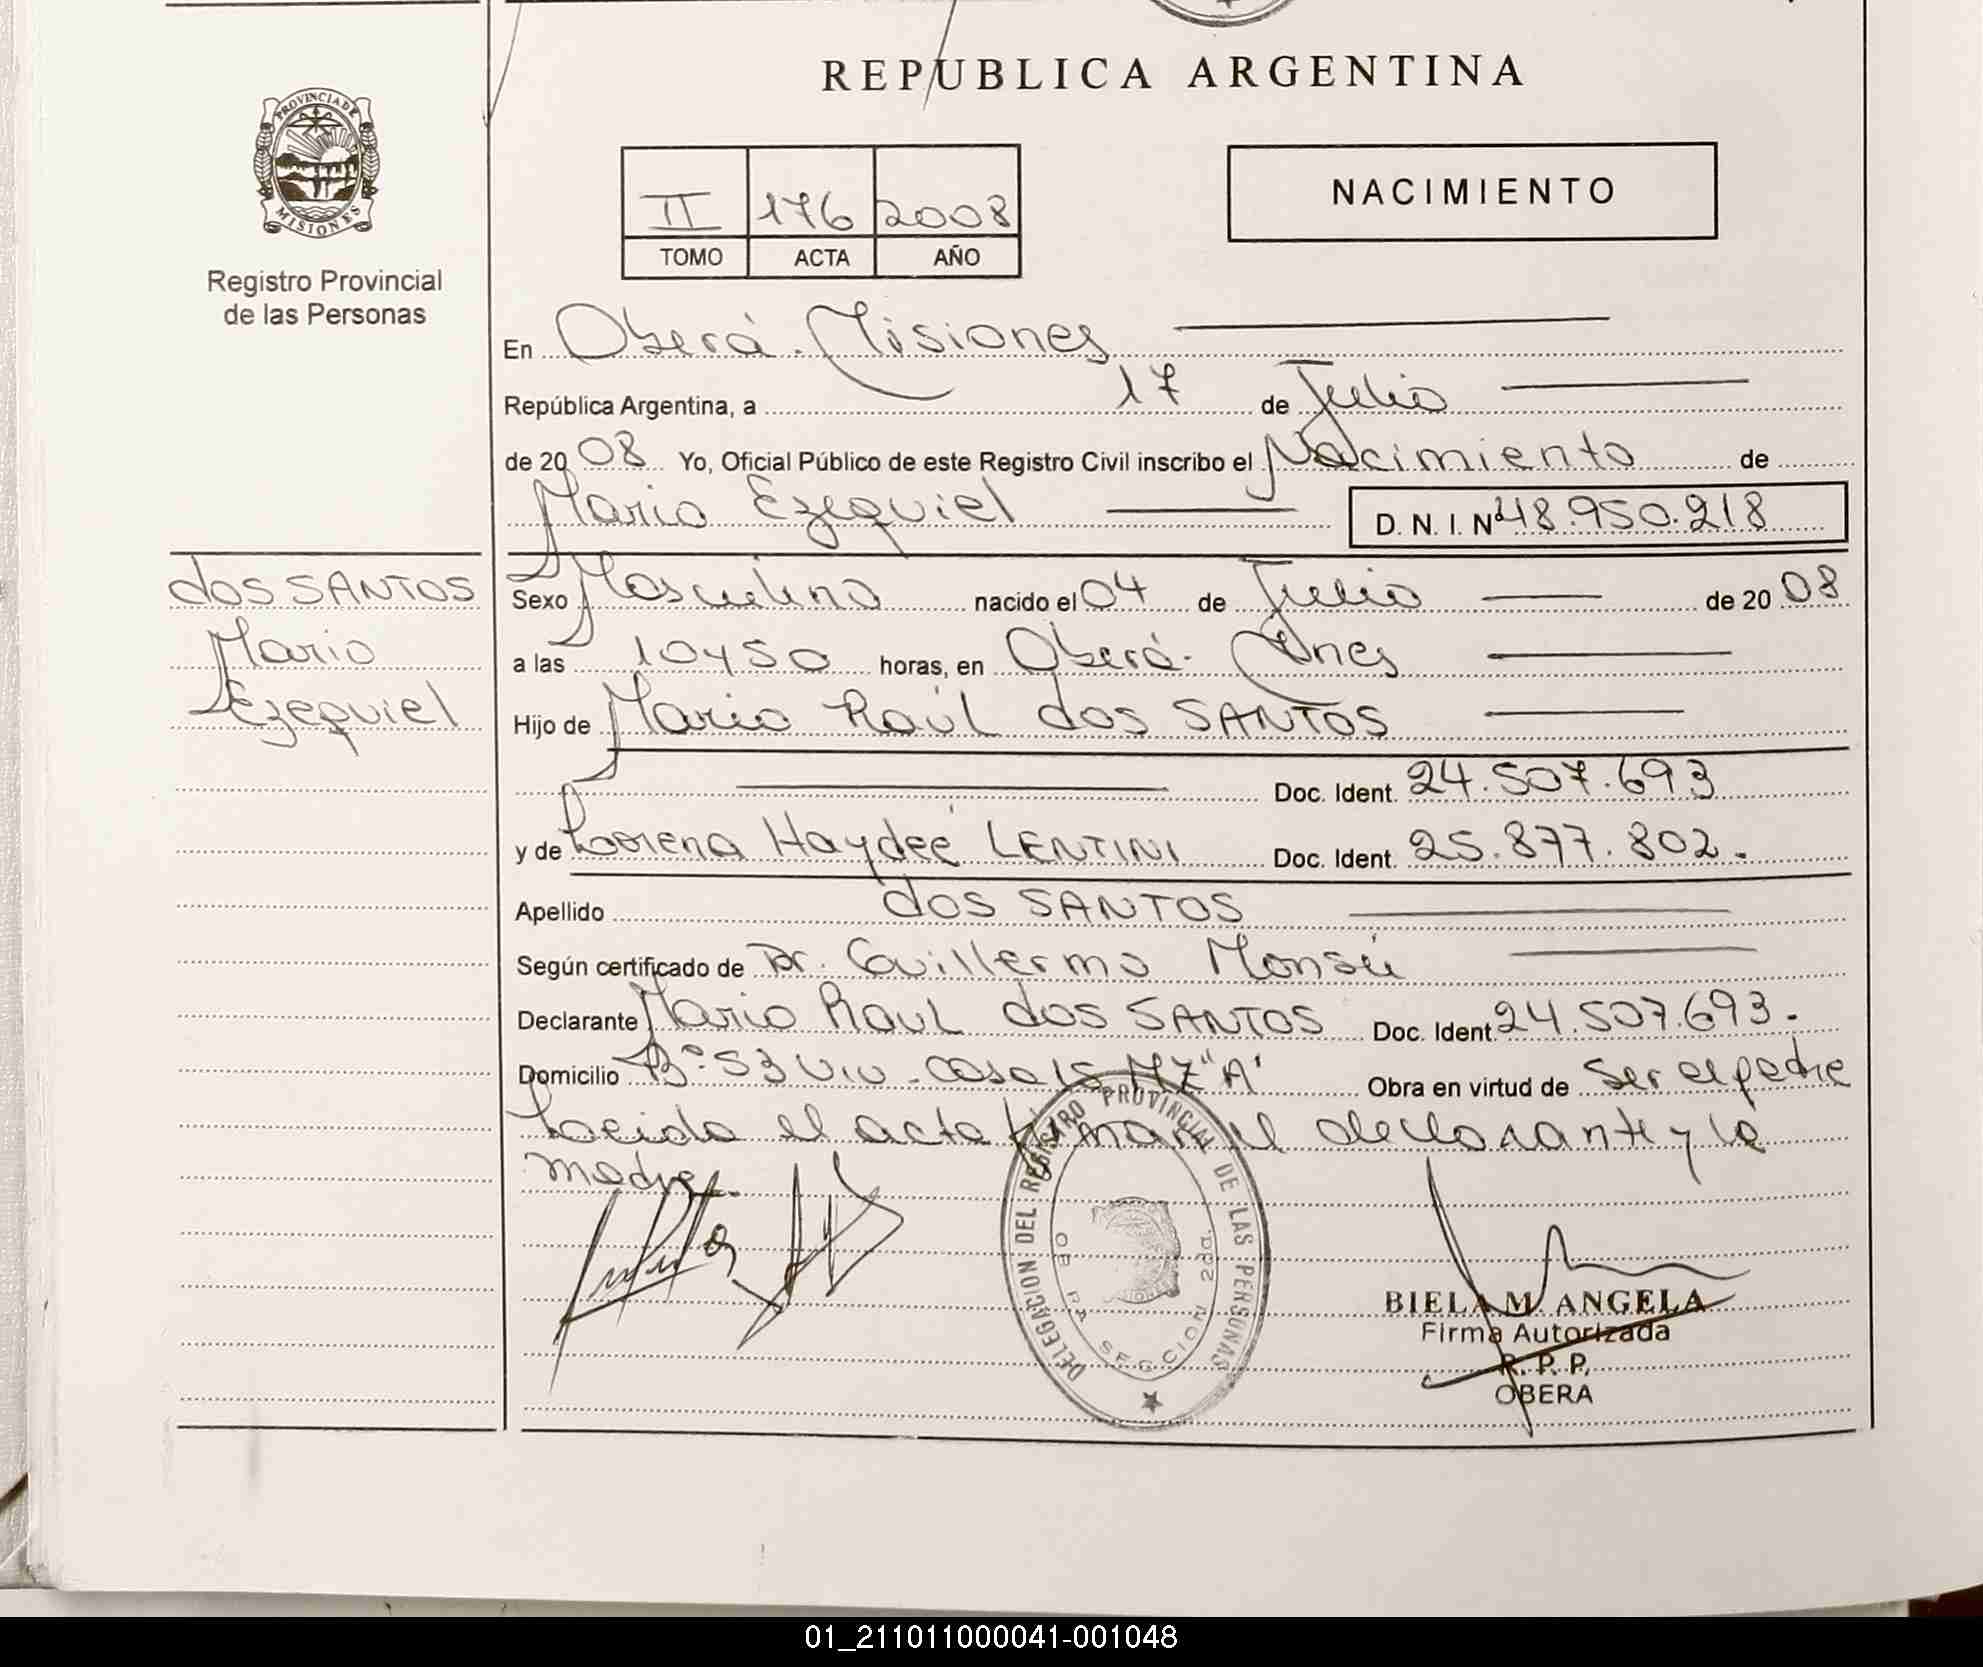 REPUBLICA ARGENTINA
PROVINCIA DE
MISIONES
Registro Provincial
de las Personas
II 176 2008
TOMO ACTA AÑO
NACIMIENTO
En Oberá. Misiones
República Argentina, a 17 de Julio
de 20 08 Yo, Oficial Público de este Registro Civil inscribo el Nacimiento de
Mario Ezequiel D. N. I. Nº 48.950.218
dos SANTOS
Mario
Ezequiel
Sexo Masculino nacido el 04 de Julio de 20 08
a las 10y50 horas, en Oberá. Mnes
Hijo de Mario Raúl dos SANTOS
Doc. Ident. 24.507.693
y de Lorena Haydeé LENTINI Doc. Ident. 25.877.802.
Apellido dos SANTOS
Según certificado de Dr. Guillermo Monsú
Declarante Mario Raul dos SANTOS Doc. Ident. 24.507.693.
Domicilio Bº 53 Viv. casa 15 MZ "A" Obra en virtud de ser el padre
Leida el acta firman el declarante y la
madre.
DELEGACION DEL REGISTRO PROVINCIAL DE LAS PERSONAS
OBERA SECCION 2da.
BIELA M. ANGELA
Firma Autorizada
R. P. P.
OBERA
01_211011000041-001048